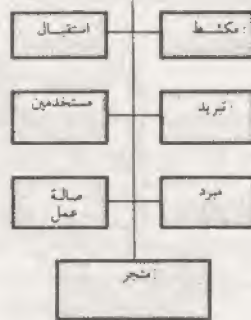 مكشط:
استقبال
تبريد:
مستخدمين
مبرد
صالة
عمل
متجر: